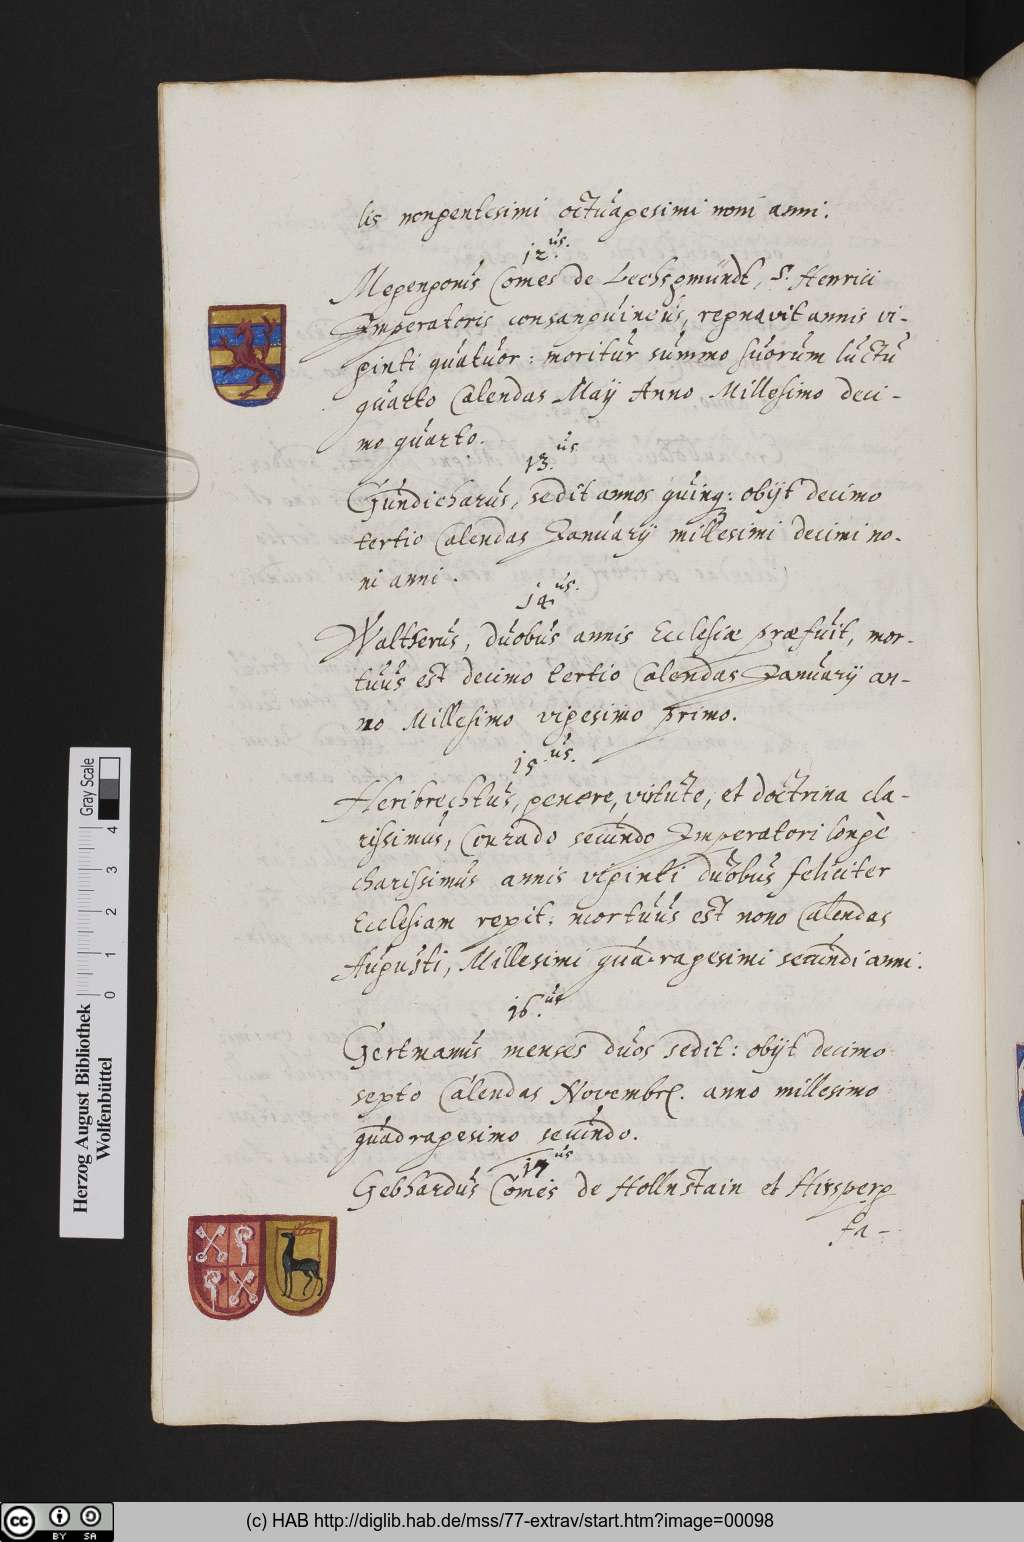 lis nongentesimi octuagesimi noni anni.
12.us.
Megengous Comes de Lechsgmündt, S. Henrici
Imperatoris consanguineus, regnavit annis vi-
ginti quatuor: moritur summo suorum luctu
quarto Calendas Maÿ Anno Millesimo deci-
mo quarto.
13.us
Gundicharus, sedit annos quinq: obÿt decimo
tertio Calendas Januarÿ millesimi decimi no-
ni anni.
14us.
Waltherus, duobus annis Ecclesiæ præfuit, mor-
tuus est decimo tertio Calendas Januarÿ an-
no Millesimo vigesimo primo.
15.us.
Heribrechtus, genere, virtute, et doctrina cla-
rissimus, Conrado secundo Imperatori longè
charissimus annis viginti duobus feliciter
Ecclesiam regit: mortuus est nono Calendas
Augusti, Millesimi quadragesimi secundi anni.
16.us
Gertmanus menses duos sedit: obÿt decimo
septo Calendas Novembr. anno millesimo
quadragesimo secundo.
17us
Gebhardus Comes de Hollnstain et Hirsperg
fa-
Herzog August Bibliothek
Wolfenbüttel
Gray Scale
0 1 2 3 4
cc BY SA
(c) HAB http://diglib.hab.de/mss/77-extrav/start.htm?image=00098